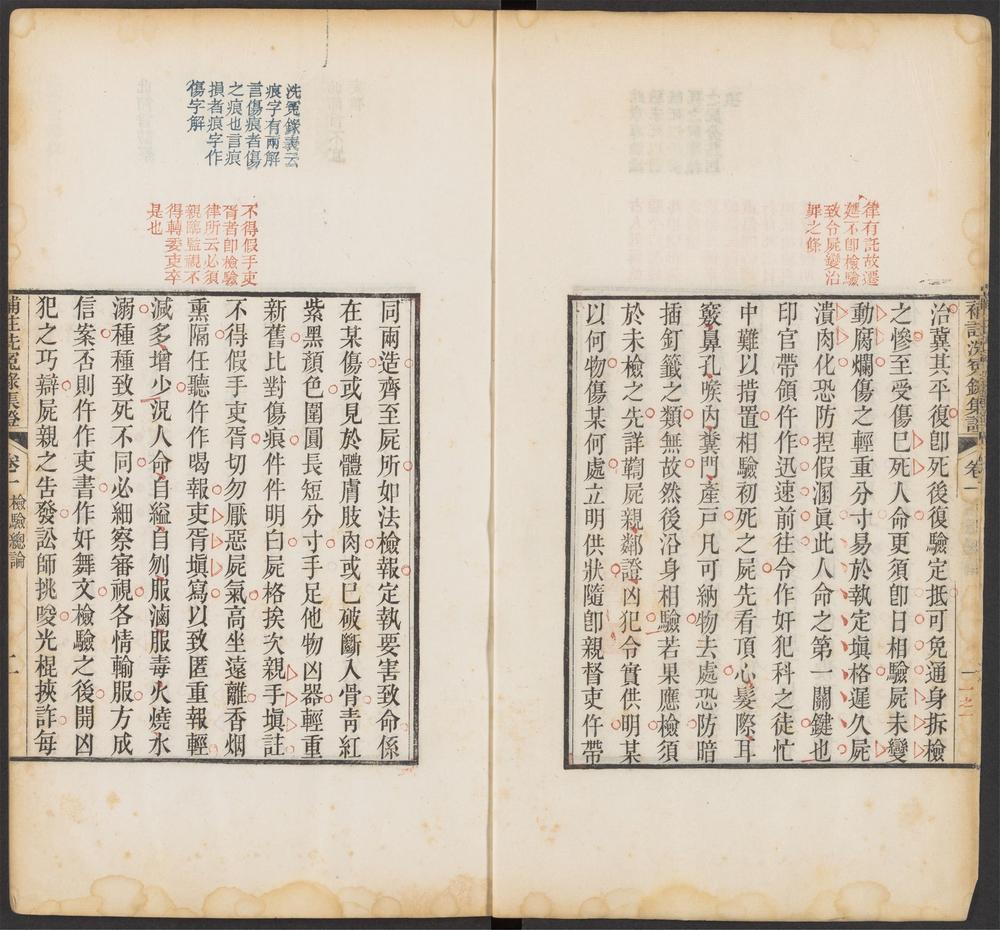 律有託故遷
延不卽檢驗
致令屍變治
罪之條
治冀其平復卽死後復驗定抵可免通身拆檢
之慘至受傷已死人命更須卽日相驗屍未變
動腐爛傷之輕重分寸易於執定塡格遲久屍
潰肉化恐防捏假溷眞此人命之第一關鍵也
印官帶領仵作迅速前往令作奸犯科之徒忙
中難以措置相驗初死之屍先看頂心髮際耳
竅鼻孔喉內糞門產戸凡可納物去處恐防暗
插釘籤之類無故然後沿身相驗若果應檢須
於未檢之先詳鞫屍親鄰證凶犯令實供明某
以何物傷某何處立明供狀隨卽親督吏仵帶
補註洗冤錄集證
卷一
洗冤錄表云
痕字有兩解
言傷痕者傷
之痕也言痕
損者痕字作
傷字解
不得假手吏
胥者卽檢驗
律所云必須
親臨監視不
得轉委吏卒
是也
同兩造齊至屍所如法檢報定執要害致命係
在某傷或見於體膚肢肉或已破斷入骨青紅
紫黑顏色圍圓長短分寸手足他物凶器輕重
新舊比對傷痕件件明白屍格挨次親手塡註
不得假手吏胥切勿厭惡屍氣高坐遠離香烟
熏隔任聽仵作喝報吏胥塡寫以致匿重報輕
減多增少況人命自縊自刎服滷服毒火燒水
溺種種致死不同必細察審視各情輸服方成
信案否則仵作吏書作奸舞文檢驗之後開凶
犯之巧辯屍親之吿發訟師挑唆光棍挾詐每
補註洗冤錄集證
卷一
檢驗總論
二